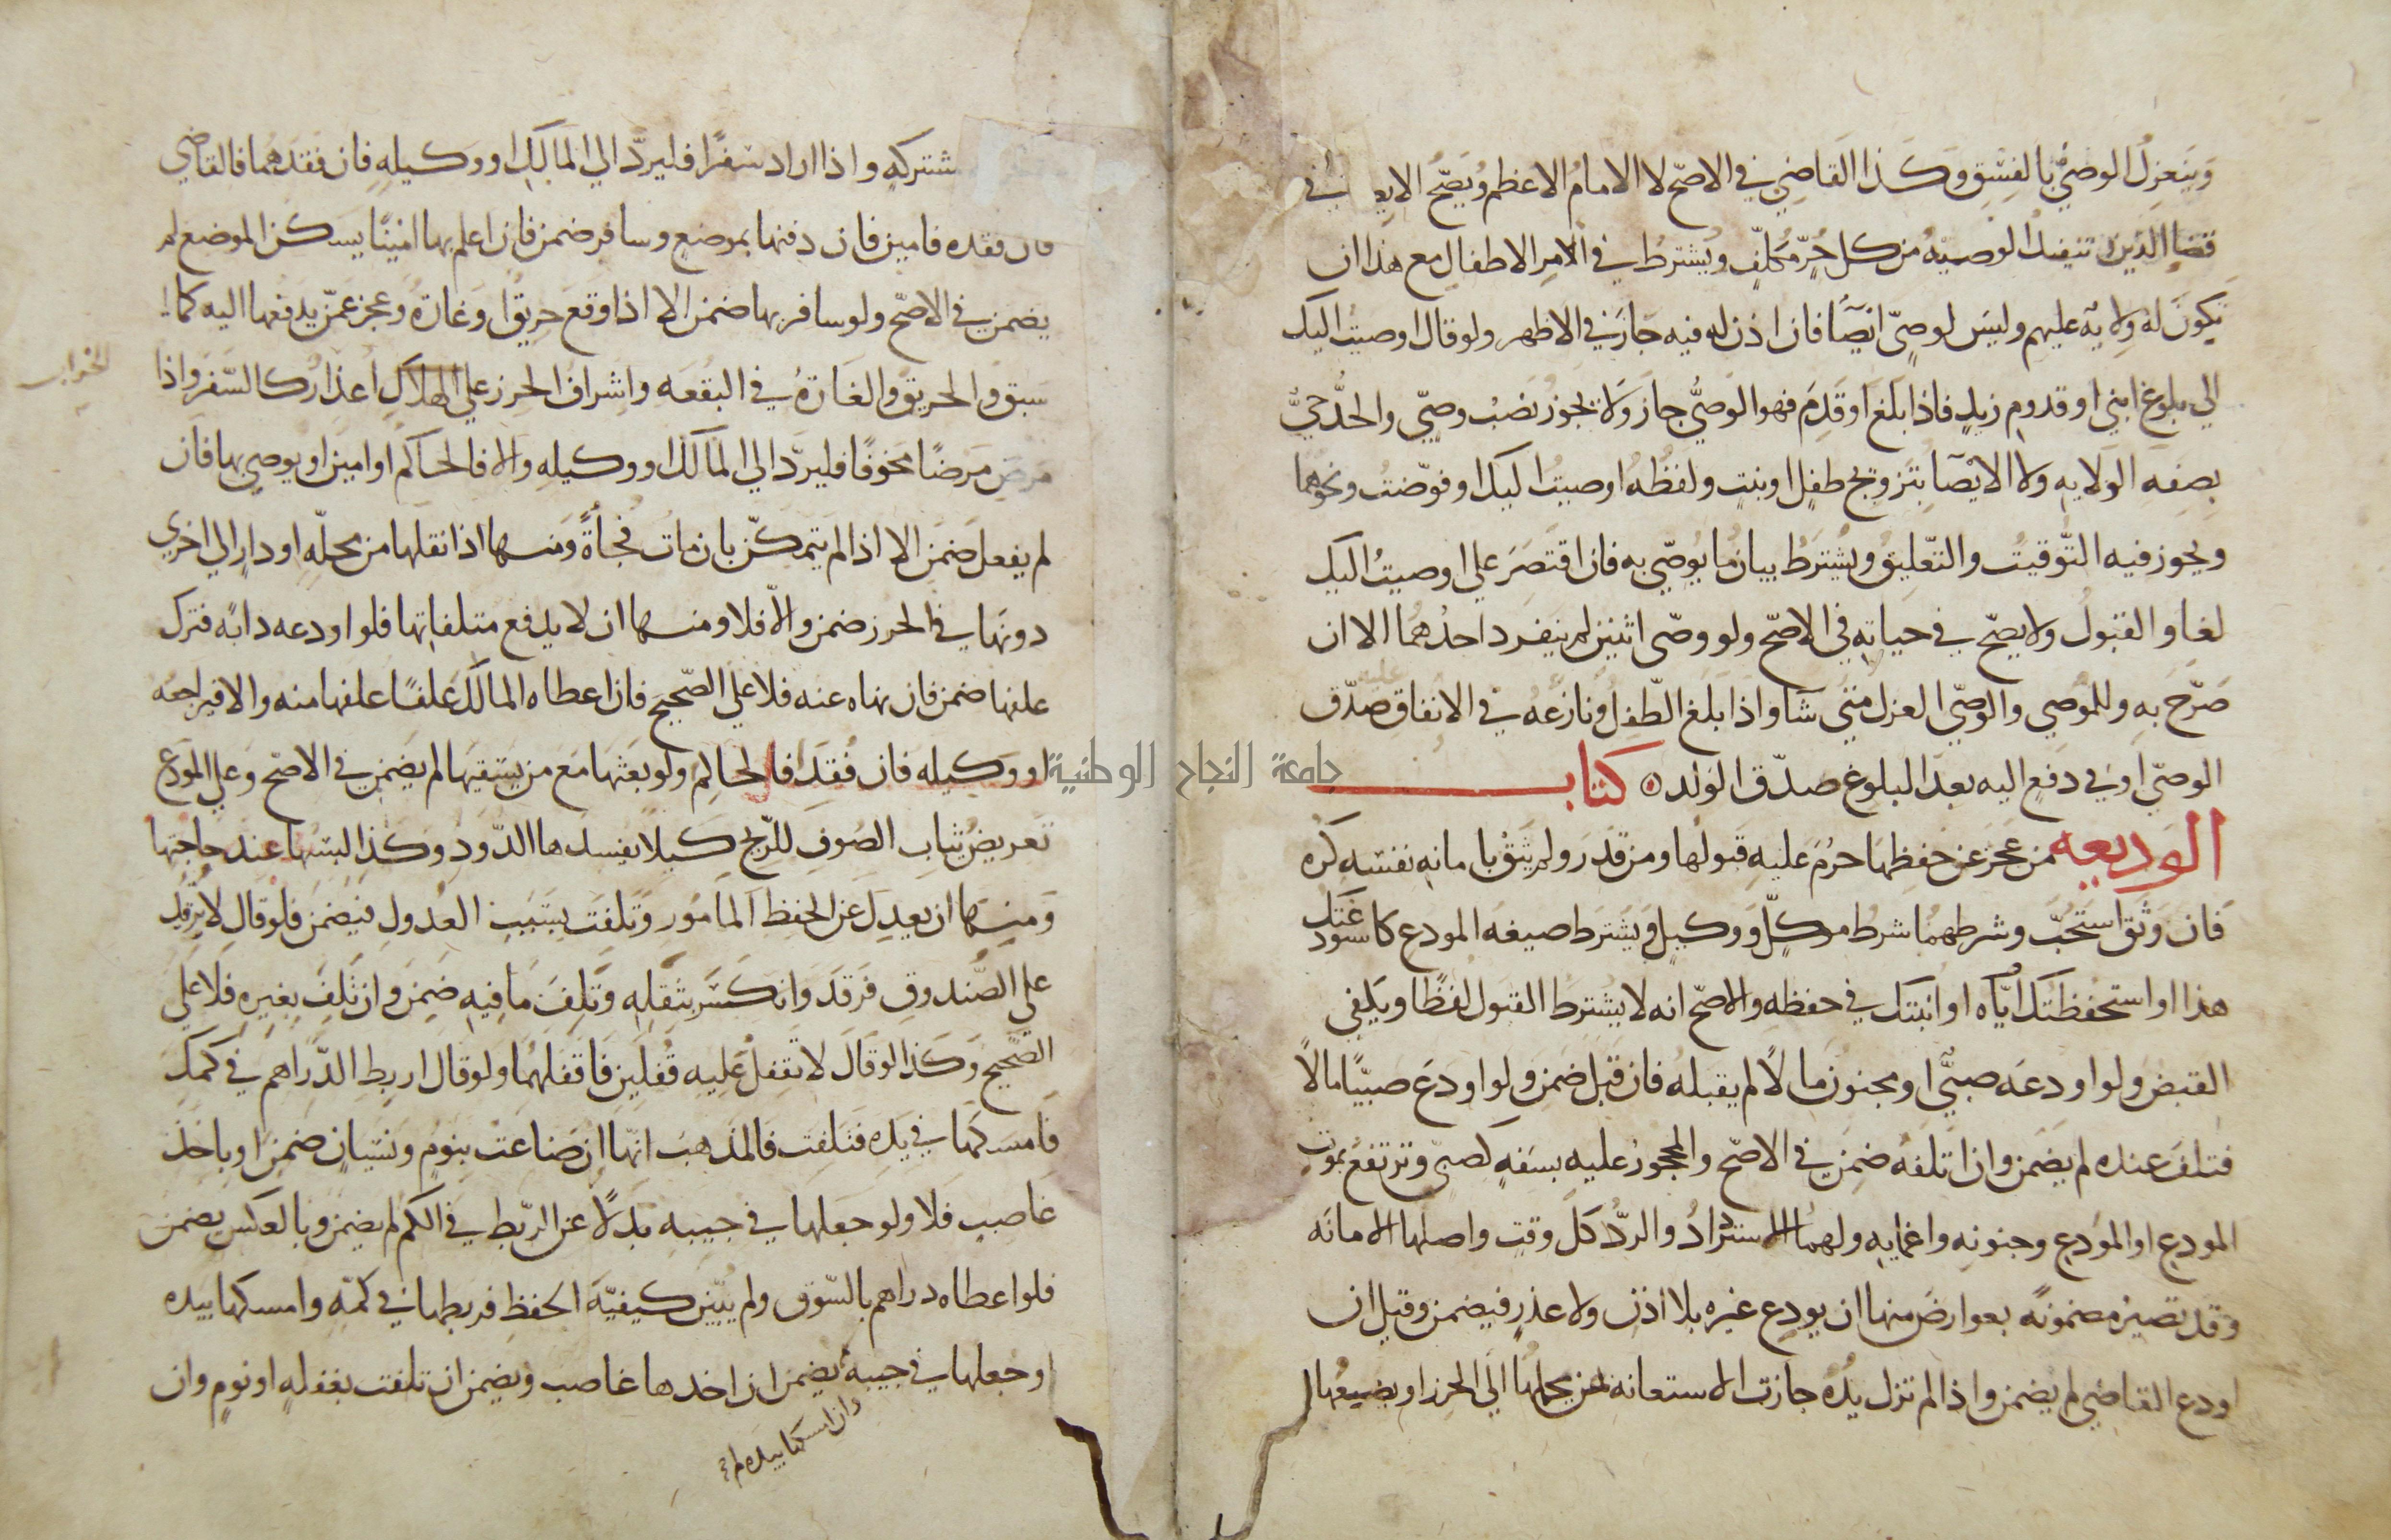 وَيَنعَزِلُ الوصيُّ بالفِسْقِ وَكَذا القَاضِي في الاصَحّ لا الامامُ الاعظم وُيَصِحّ الايـ في
قضاِ الدَين وتنفيذ الوصيه من كل حُرٍّ مُكلّفٍ ويُشترطُ في امر الاطفال مع هذا ان
يَكونَ لهُ وِلايَةٌ عليهم وليسَ لوصِيّ ايصَآءٌ فان اذن له فيه جَازَ في الاظهر ولو قال اوصيتُ اليكَ
الي بلوغ ابني او قدوم زيدٍ فاذا بَلغَ او قَدِمَ فهو الوصيُّ جاز وَلا يجوز نَصْبُ وصيّ والجَدُّ حيٌّ
بصِفَه الوَلايه ولا الايْصَآ بتزويج طفلٍ او بنتٍ ولفظُهُ اوصيتُ اليكَ او فوّضتُ ونحوُهما
ويجوز فيه التّوقيتُ والتّعليقُ ويُشترَطُ بيان ما يُوصّي به فان اقتصَرَ علي اوصيتُ اليكَ
لغا والقبولُ ولا يصحّ في حياتِهِ في الاصَحّ ولو وصّى اثنين لم ينفرد احدُهُما الا ان
صَرّحَ بهِ وللمُوصي والوصيّ العزلُ متى شَآ واذا بَلغَ الطّفلُ ونازَعهُ في الانفاق صُدّق
الوصيّ او في دَفعٍ اليه بعدَ البلوغ صدّق الوَلد ه كتابـــــــ
الوديعه من عَجَز عن حفظها حرُمَ عليهِ قبولُها ومن قدَر ولم يَثِقْ بامانهِ نفسه كرِه
فان وَثقَ استُحبّ وشرطهمُا شرطُ موكّلٍ ووكيلٍ ويُشتَرط صيغهُ المودع كاستودعتكَ
هذا او استحفظتُكَ ايّاه او انبتكَ في حفظهِ والاصَحّ انه لا يُشترطُ القبول لفظًا ويَكفي
القبضُ ولو اودعَه صبيٌّ او مجنونٌ مالاً لم يقبله فان قَبِلَ ضمن ولو اودعَ صبيّاً مالاً
فتلفَ عنده لم يضمن وان اتلفهُ ضمِنَ في الاصَحّ والمحجورُ عليه بسفهٍ كصبيّ وترتفعُ بموتِ
المودِع او المُودَع وجنونِهِ واغمايِهِ ولهمُا الاستردادُ والردُّ كلّ وقتٍ واصلها الامانَه
وقد تصيرُ مضمونةً بعوارضَ منها ان يودِع غيره بلا اذن ولا عذرٍ فيضمن وقيل ان
اودع القاضيَ لم يضمن واذا لم تزل يدُه جازت الاستعانه بمن يحملها الَي الحرز او يضعُها
شتركه واذا اراد سَفَراً فليردّ الي المالكِ او وكيلِهِ فان فقدهما فالقاضي
فان فقده فامين فان دفنها بموضعٍ وسافر ضمن فان اعلم بها امينًا يسكن الموضع لم
يضمن في الاصَحّ ولو سافر بها ضمن الا اذا وقع حريقٌ او غارَةٌ وعجز عمّن يدفعها اليه كما
سبق والحريقُ والغارةُ في البقعه واشرافُ الحرز علي الهلاكِ اعذارٌ كالسّفر واذا
مرضَ مرَضًا مخوفًا فليردّ الي المالك او وكيله والا فالحاكم او امين او يوصي بها فان
لم يفعل ضمَن الا اذا لم يتمكّن بان ماتَ فُجأةً ومنها اذا نقلها من محلّهٍ او دارٍ الي اخري
دونها في الحرز ضمن والاّ فلا ومنها ان لا يدفع متلفاتِها فلو اودعه دابّه فترك
علفها ضمن فان نهاه عنه فلا علي الصّحيح فان اعطاه المالكُ علفًا علفها منه والا فيراجعه
او وكيله فان فُقِدَا فالحاكم ولو بعثها مَع من يسقيها لم يضمن في الاصَحّ وعلي المودَعِ
تعريضُ ثياب الصُوفِ للرّيح كيلا يفسدها الدّود وكذا لبسها عند حاجتها
وَمنها ان يعدِلَ عن الحفظ المامُور وتَلفَت بسَبَب العُدولِ فيَضمَن فلو قال لا تَرقُد
علي الصّندوق فرقدَ وانكسَر بثقلِهِ وتَلِفَ مَا فيهِ ضمِنَ وان تَلِفَ بغيرِه فلا علي
الصّحيح وكَذا لو قالَ لا تقفل عليه قُفلَينِ فاقفلَهُما ولو قال اربطِ الدّراهمَ في كُمّكَ
فَامسَكهَا في يده فتلفت فالمذهبُ انّها ان ضاعَت بنومٍ ونسيانٍ ضمِن او باخذ
غاصبٍ فلا ولو جعلها في جيبهِ بَدَلاً عن الرّبط في الكم لم يضمن وبالعكس يضمن
فلو اعطاه دراهم بالسّوق ولم يُبيّن كيفيّةَ الحفظِ فربطها في كمّهِ وامسكها بيده
او جعلها في جيبهِ لم يضمن ان اخذها غاصب ويضمن ان تلفت بغفلهٍ او نومٍ وان
وان امسكها بيده لم
جامعة النجاح الوطنية